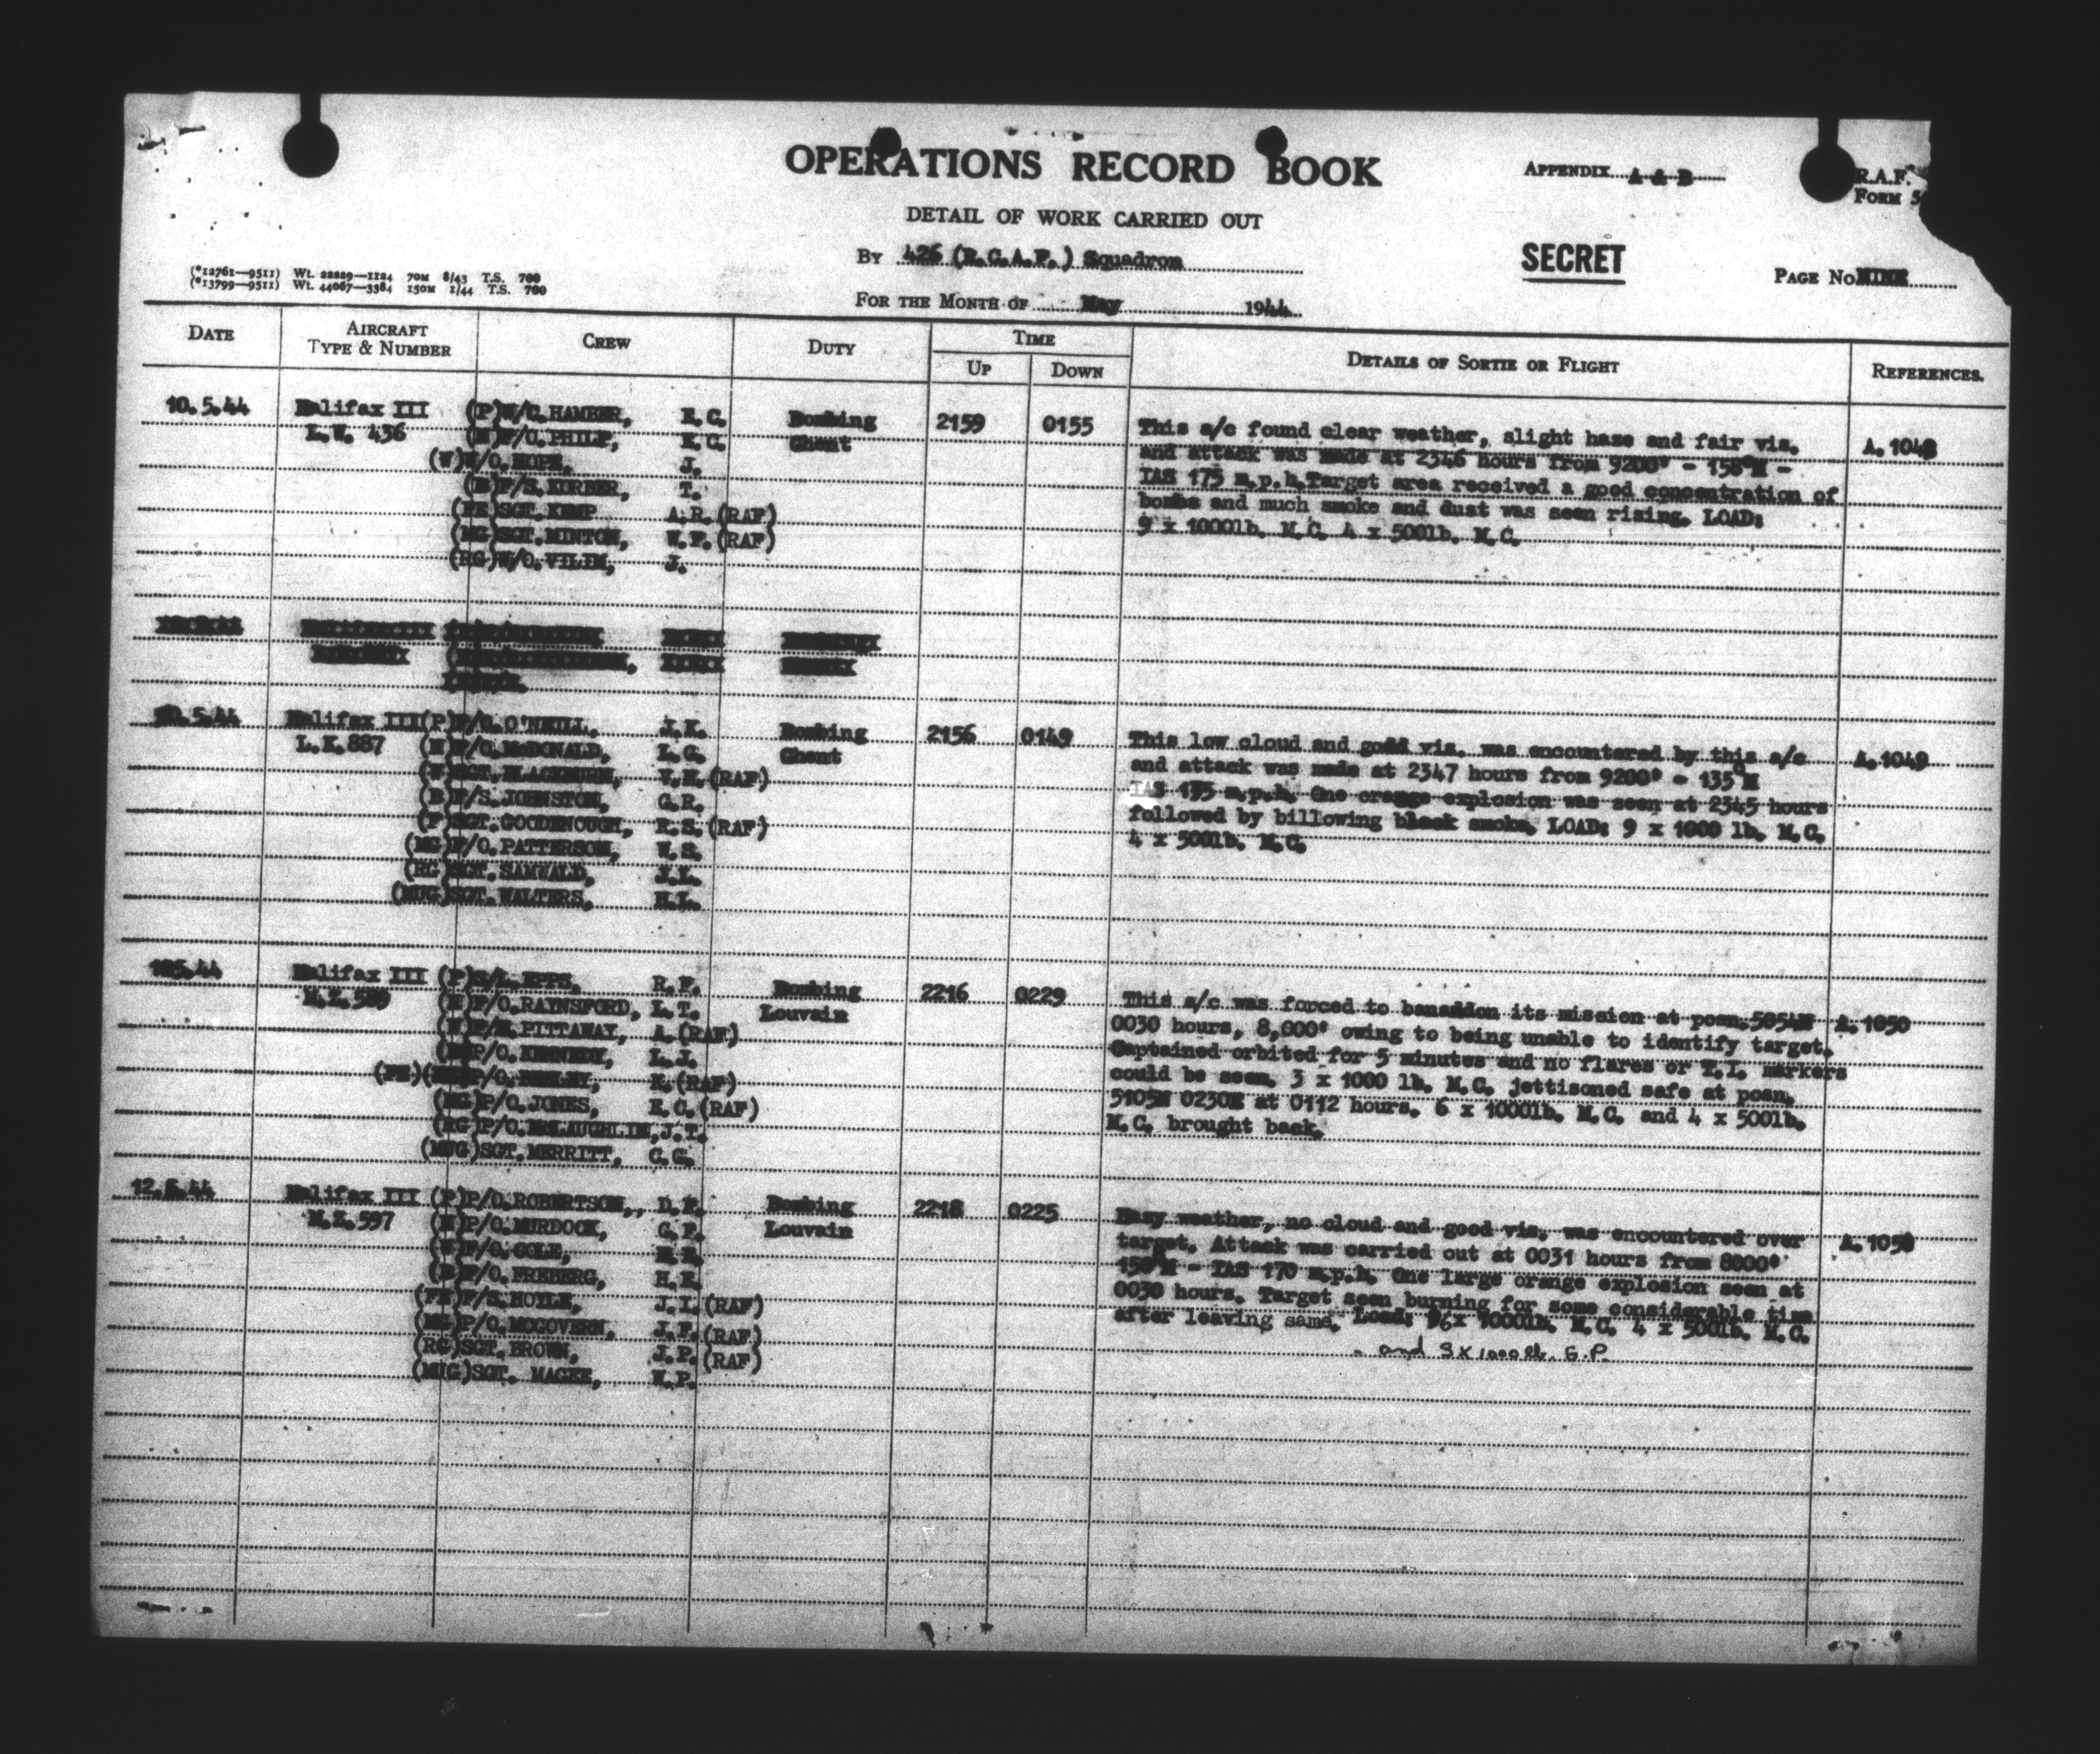 OPERATIONS RECORD BOOK
APPENDIX A & B
R.A.F.
FORM 5
DETAIL OF WORK CARRIED OUT
BY 426 (R.C.A.F.) Squadron
SECRET
PAGE No NINE
(*12761—9511) Wt. 22229—1124 70M 8/43 T.S. 700
(*13799—9511) Wt. 44067—3384 150M 1/44 T.S. 700
FOR THE MONTH OF May 1944
DATE AIRCRAFT TYPE & NUMBER CREW DUTY TIME UP DOWN DETAILS OF SORTIE OR FLIGHT REFERENCES.
10.5.44 Halifax III (P)W/C.HAMBER, E.C. Bombing 2159 0155 This a/c found clear weather, slight haze and fair vis. A.1048
L.W. 436 (N)F/O.PHILP, E.C. Ghent and attack was made at 2346 hours from 9200' - 158°M -
(W)W/O.HOPE, J. IAS 175 m.p.h.Target area received a good concentration of
(B)F/S.KORBER, T. bombs and much smoke and dust was seen rising. LOAD:
(FE)SGT.KEMP A.R.(RAF) 9 x 1000lb. M.C. 4 x 500lb. M.C.
(MG)SGT.MINTON, W.F.(RAF)
(RG)W/O.VILIM, J.
.5.44 Halifax III(P)F/O.O'NEILL, J.K. Bombing 2156 0149 This low cloud and good vis. was encountered by this a/c A.1049
L.K.887 (N)F/O.McDONALD, L.G. Ghent and attack was made at 2347 hours from 9200' - 135°M
(W)SGT.BLACKBURN, V.H.(RAF) IAS 175 m.p.h. One orange explosion was seen at 2345 hours
(B)F/S.JOHNSTON, G.R. followed by billowing black smoke. LOAD: 9 x 1000 lb. M.C.
(F)SGT.GOODENOUGH, R.S.(RAF) 4 x 500lb. M.C.
(MG)F/O.PATTERSON, W.S.
(RG)SGT.SAMWALD, J.L.
(MUG)SGT.WALTERS, H.L.
5.44 Halifax III (P)S/L.EPPS, R.F. Bombing 2216 0229 This a/c was forced to banaddon its mission at posn.5054N A.1050
M.Z.589 (N)F/O.RAYNSFORD, L.T. Louvain 0030 hours, 8,000' owing to being unable to identify target.
PITTAWAY, A.(RAF) Captained orbited for 5 minutes and no flares or T.I. markers
P/O.KENNEDY, L.J. could be seen. 3 x 1000 lb. M.C. jettisoned safe at posn.
(FE) P/O. K.(RAF) 5105N 0230E at 0112 hours. 6 x 1000lb. M.C. and 4 x 500lb.
(MG)P/O.JONES, E.C.(RAF) M.C. brought back.
(RG)P/O.McLAUGHLIN,J.T.
(MUG)SGT.MERRITT, C.G.
12.5.44 Halifax III (P)P/O.ROBERTSON,, D.F. Bombing 2218 0225 Hazy weather, no cloud and good vis. was encountered over
M.Z.597 (N)P/O.MURDOCK, G.F. Louvain target. Attack was carried out at 0031 hours from 8000'
(W)F/O.COLE, 150°M - IAS 170 m.p.h. One large orange explosion seen at
(B)F/O.FREBERG, H.E. 0030 hours. Target seen burning for some considerable time
(FE)F/S.HOYLE, J.I.(RAF) after leaving same. Load: 6x 1000lb. M.C. 4 x 500lb. M.C.
P/O.MCGOVERN, J.F.(RAF) and 3 x 1000 lb. G.P.
(RG)SGT.BROWN, J.P.(RAF)
(MUG)SGT. MAGEE, W.P.